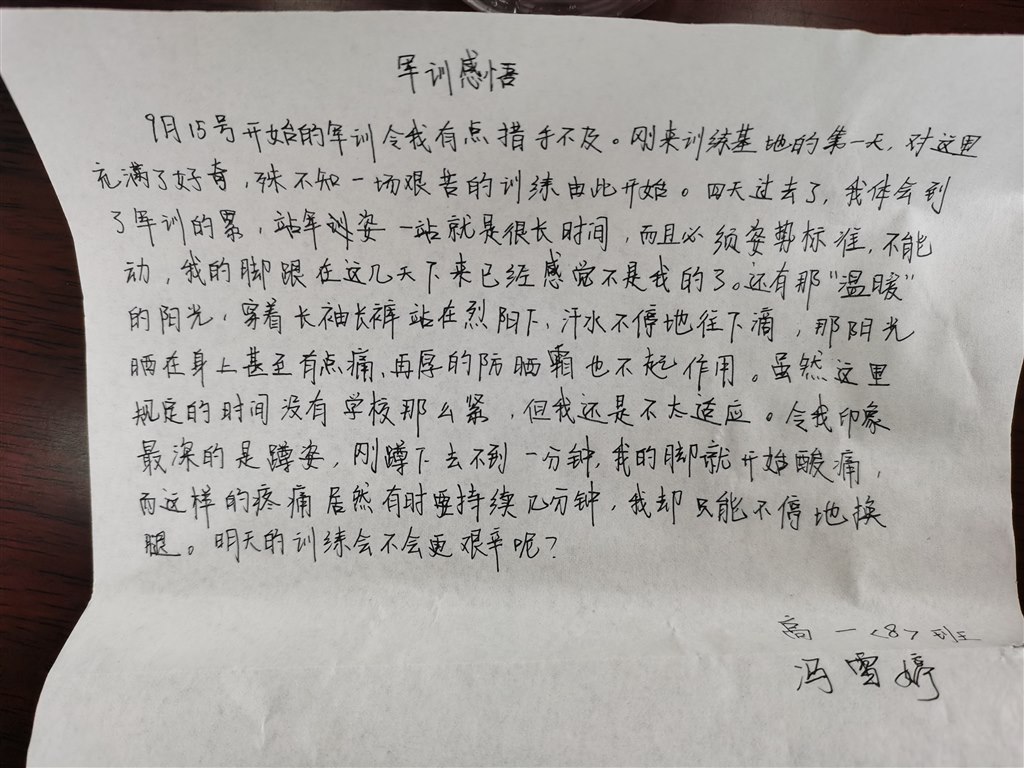 军训感悟
9月15号开始的军训令我有点措手不及。刚来训练基地的第一天,对这里
充满了好奇,殊不知一场艰苦的训练由此开始。四天过去了,我体会到
了军训的累,站军姿一站就是很长时间,而且必须姿势标准,不能
动,我的脚跟在这几天下来已经感觉不是我的了。还有那“温暖”
的阳光,穿着长袖长裤站在烈阳下,汗水不停地往下滴,那阳光
晒在身上甚至有点痛,再厚的防晒霜也不起作用。虽然这里
规定的时间没有学校那么紧,但我还是不太适应。令我印象
最深的是蹲姿,刚蹲下去不到一分钟,我的脚就开始酸痛,
而这样的疼痛居然有时要持续几分钟,我却只能不停地换
腿。明天的训练会不会更艰辛呢?
高一<8>班
冯雪婷